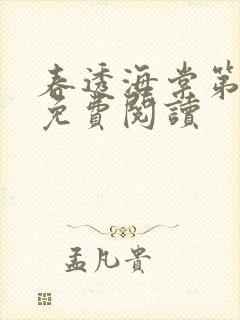 春透海棠第
免費閱讀
孟凡貴